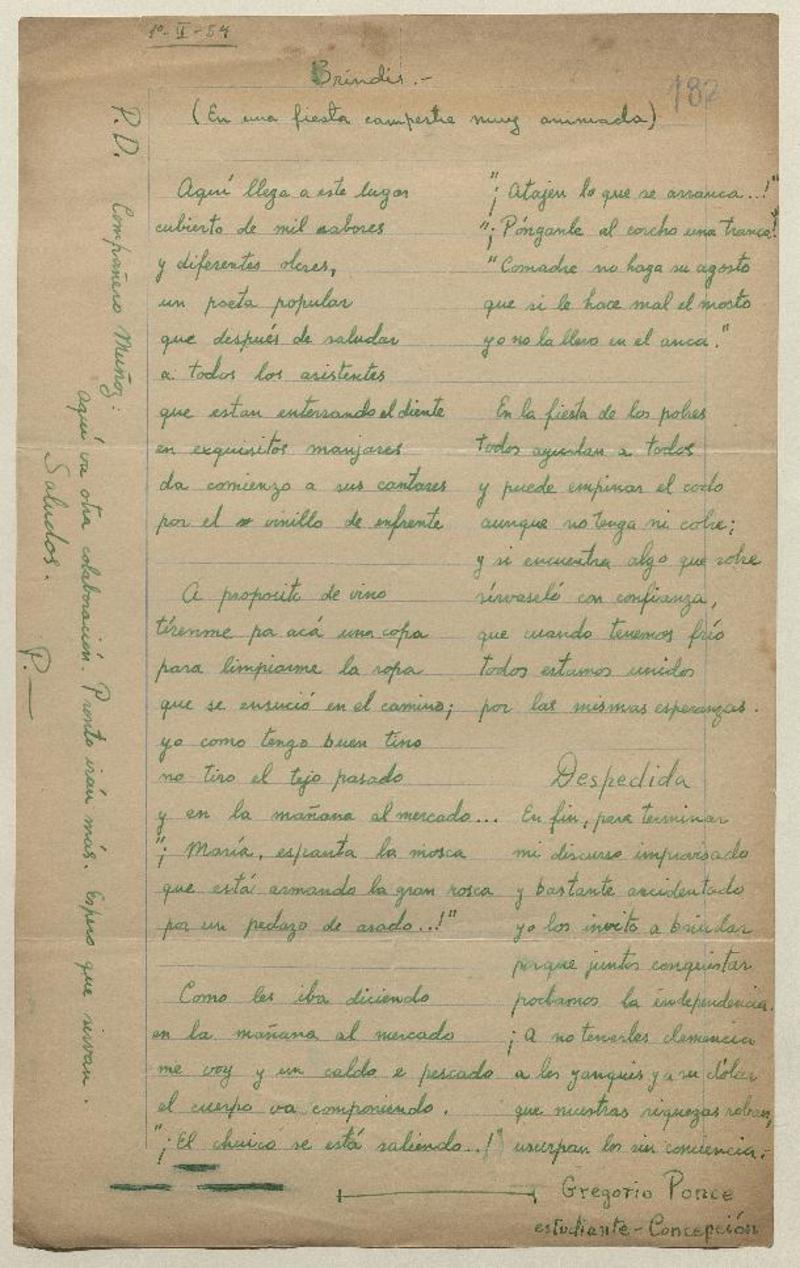 1º-II-54
Brindis.-
187
(En una fiesta campestre muy animada)
Aquí llega a este lugar
cubierto de mil sabores
y diferentes olores,
un poeta popular
que después de saludar
a todos los asistentes
que estan enterrando el diente
en exquisitos manjares
da comienzo a sus cantares
por el vinillo de enfrente
A proposito de vino
tírenme pa acá una copa
para limpiarme la ropa
que se ensució en el camino;
yo como tengo buen tino
no tiro el tejo pasado
y en la mañana al mercado...
"¡María, espanta la mosca
que está armando la gran rosca
por un pedazo de asado...!"
Como les iba diciendo
en la mañana al mercado
me voy y un caldo e pescado
el cuerpo va componiendo.
"¡El chuico se está saliendo...!"
"¡Atajen lo que se arranca...!"
"¡Pónganle al corcho una tranca!"
"Comadre no haga su agosto
que si le hace mal el mosto
yo no la llevo en el anca."
En la fiesta de los pobres
todos ayudan a todos
y puede empinar el codo
aunque no tenga ni cobre;
y si encuentra algo que sobre
sírvaseló con confianza,
que cuando tenemos frío
todos estamos unidos
por las mismas esperanzas.
Despedida
En fin, para terminar
mi discurso improvisado
y bastante accidentado
yo los invito a brindar
porque juntos conquistar
podamos la independencia.
¡A no tenerles clemencia
a los yanquis y a su dólar
que nuestras riquezas roban,
usurpan los sin conciencia.-
Gregorio Ponce
estudiante - Concepción
P.D. Compañero Muñoz:
aquí va otra colaboración. Pronto irán más. Espero que sirvan.
Saludos.
P.—